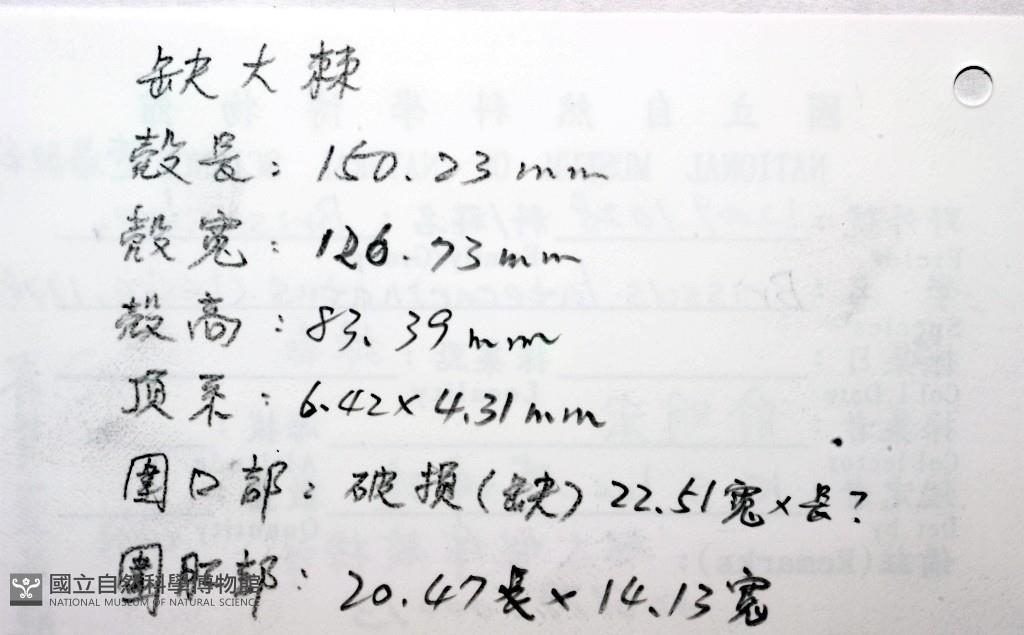 缺大棘
殼長：150.23mm
殼寬：126.73mm
殼高：83.39mm
頂系：6.42×4.31mm
圍口部：破損(缺) 22.51寬×長?
圍肛部：20.47長×14.13寬
國立自然科學博物館
NATIONAL MUSEUM OF NATURAL SCIENCE